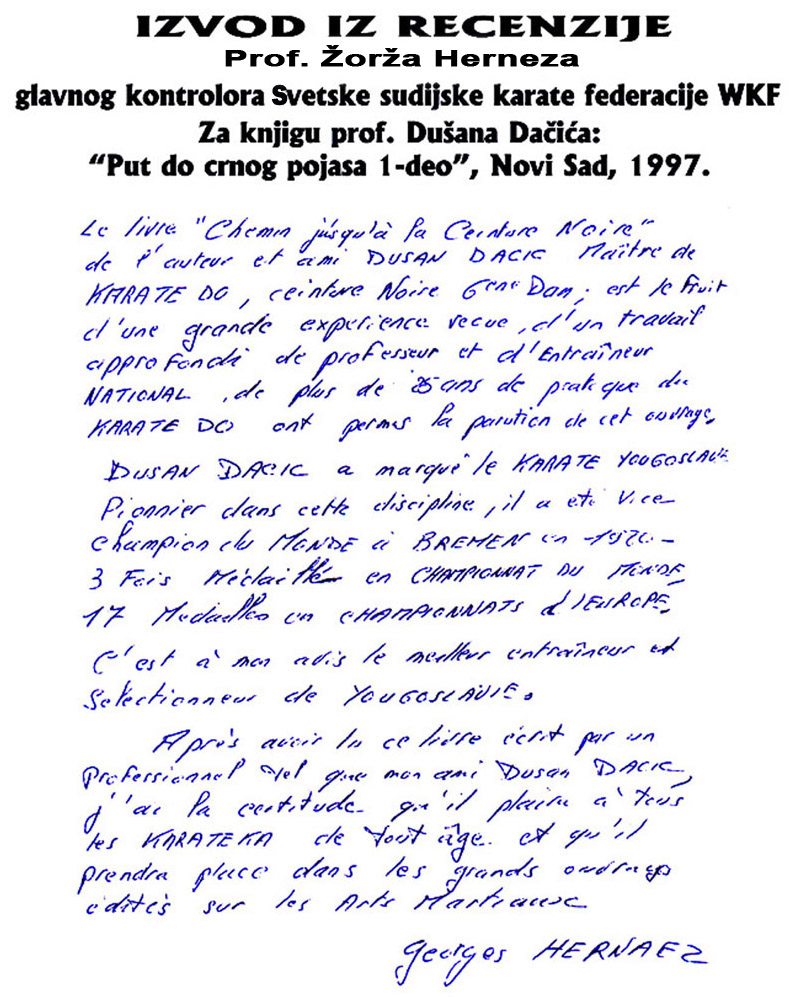 IZVOD IZ RECENZIJE
Prof. Žorža Herneza
glavnog kontrolora Svetske sudijske karate federacije WKF
Za knjigu prof. Dušana Dačića:
“Put do crnog pojasa 1-deo”, Novi Sad, 1997.
Le livre "Chemin jusqu'à la Ceinture Noire"
de l'auteur et ami DUSAN DACIC Maître de
KARATE DO, ceinture Noire 6eme Dan, est le fruit
d'une grande experience vecue, d'un travail
approfondi de professeur et d'Entraîneur
NATIONAL, de plus de 25 ans de pratique du
KARATE DO ont permis la parution de cet ouvrage,
DUSAN DACIC a marqué le KARATE YOUGOSLAVE
Pionnier dans cette discipline, il a eté Vice
champion du MONDE à BREMEN en
3 Fois Médaillé en CHAMPIONNAT DU MONDE,
17 Medailles en CHAMPIONNATS d'EUROPE,
C'est à mon avis le meilleur entraîneur et
Selectionneur de YOUGOSLAVIE.
Après avoir lu ce livre écrit par un
Professionnel tel que mon ami DUSAN DACIC,
j'ai la certitude qu'il plaira à tous
les KARATEKA de tout âge et qu'il
prendra place dans les grands ouvrages
édités sur les Arts Martiaux
Georges HERNAEZ